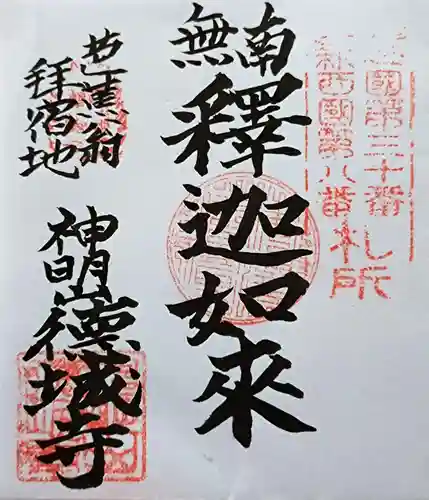 四國第三十番
新西國第八番札所
南無
釋迦如來
芭蕉翁
拝宿地
神明山德城寺